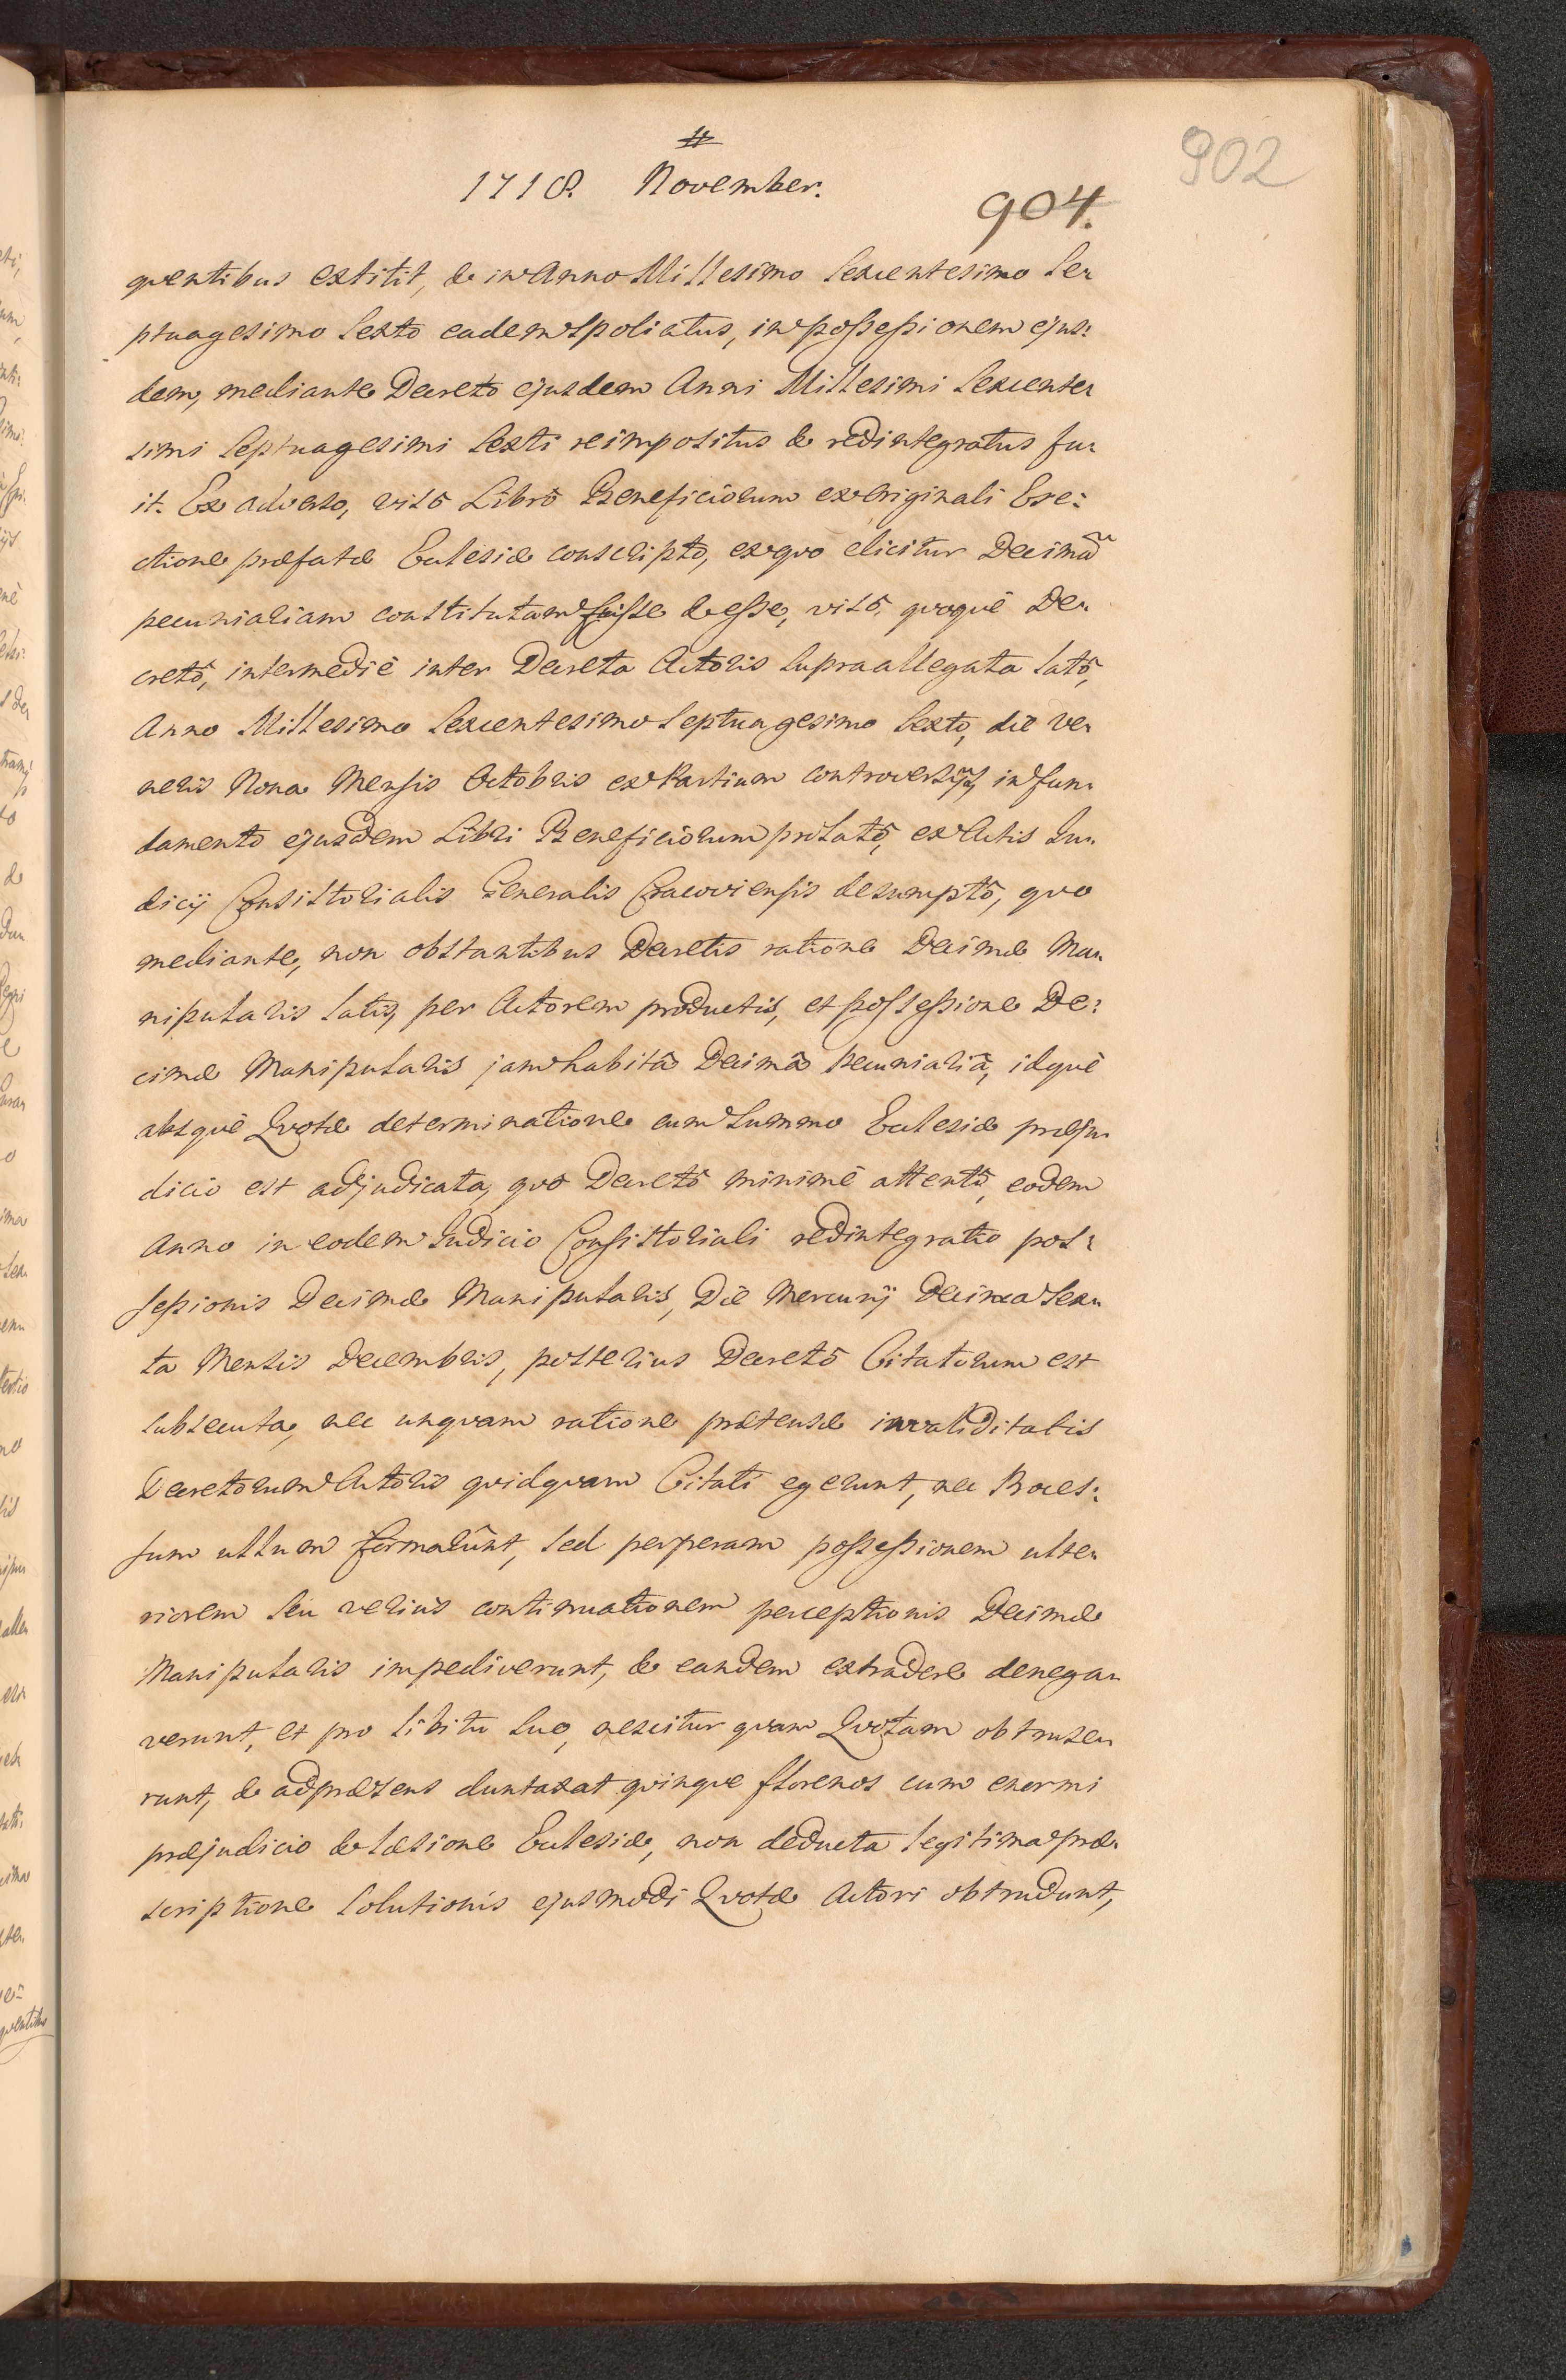 #
1718. November.
902
904.
quentibus extitit, & in Anno Millesimo Sexcentesimo Se-
ptuagesimo Sexto eadem spoliatus, in possessionem ejus:
dem, mediante Decreto ejusdem Anni Millesimi Sexcente-
simi Septuagesimi Sexti reimpositus & redintegratus fu-
it. Ex adverso, visô Librô Beneficiorum ex Originali Ere:
ctione præfatæ Ecclesiæ conscripto, ex quo elicitur Decimã
pecuniariam constitutam fuisse & esse, visô quoquè De-
cretô, intermediè inter Decreta Actoris supra allegata latô,
Anno Millesimo Sexcentesimo Septuagesimo Sexto, die Ve-
neris Nona Mensis Octobris ex Partium controversijs, in fun-
damento ejusdem Libri Beneficiorum prolatô, ex Actis Ju-
dicij Consistorialis Generalis Cracoviensis desumptô, quo
mediante, non obstantibus Decretis ratione Decimæ Ma-
nipularis latis, per Actorem productis, et possessione De:
cimæ Manipularis jam habitâ Decimâ pecuniariâ, idquè
absquè Quotæ determinatione cum summo Ecclesiæ præju-
dicio est adjudicata, quo Decretô minimè attentô, eodem
Anno in eodem Judicio Consistoriali redintegratio pos-
sessionis Decimæ Manipularis, Die Mercurij Decima Sex-
ta Mensis Decembris, posterius Decretô Citatorum est
subsecuta, nec unquam ratione prætensæ invaliditatis
Decretorum Actoris quidquam Citati egerunt, nec Proces:
sum ullum formarûnt, sed perperam possessionem ulte-
riorem seu veriùs continuationem perceptionis Decimæ
Manipularis impediverunt, & eandem extradere denega-
verunt, et pro libitu suo, nescitur quam Quotam obtruse-
runt, & ad præsens duntaxat quinque florenos cum enormi
præjudicio & læsione Ecclesiæ, non deducta legitima præ-
scriptione Solutionis ejusmodi Quotæ Actori obtrudunt,